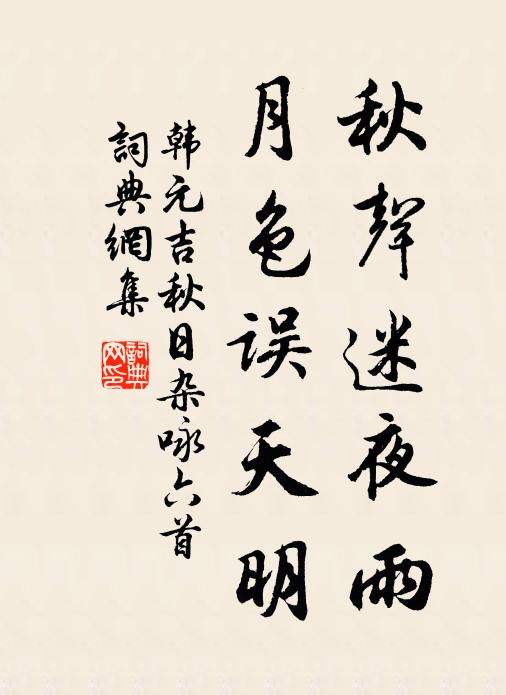 秋聲迷夜雨
月色误天明
韩元吉秋日杂咏六首
詞典網集
詞典網印